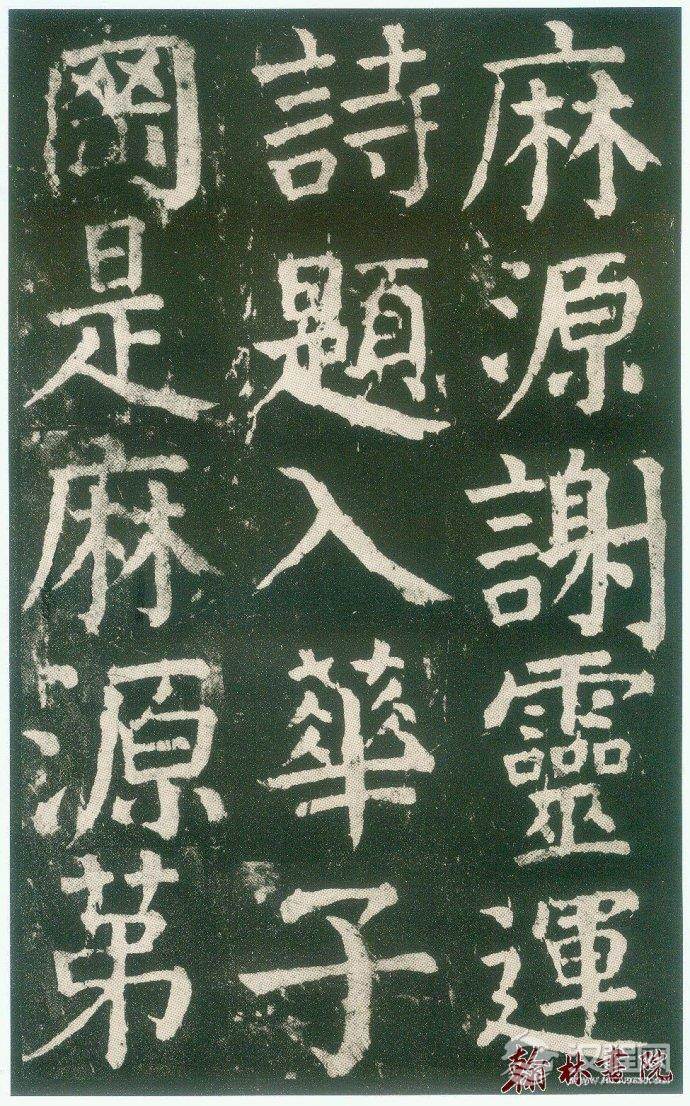 麻源謝靈運
詩題入華子
罡是麻源苐
翰林書院